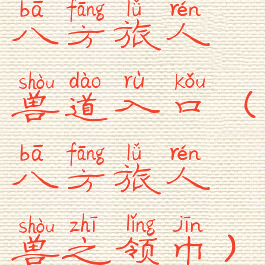 bā fāng lǚ rén
八方旅人
shòu dào rù kǒu
兽道入口（
bā fāng lǚ rén
八方旅人
shòu zhī lǐng jīn
兽之领巾）